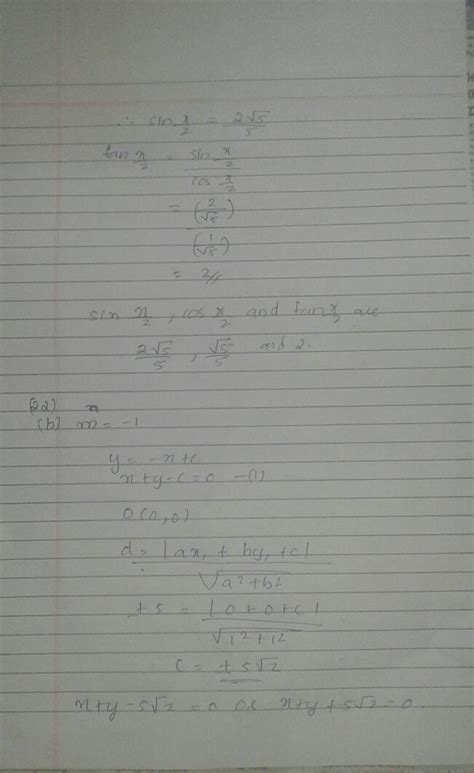 ∴ sin x/2 = 2√5/5
tan x/2 = (sin x/2)/(cos x/2)
= (2/√5)/(1/√5)
= 2//
sin x/2, cos x/2 and tan x/2 are
2√5/5, √5/5 and 2.
(22)
(b) m = -1
y = -x+c
x+y-c=0 -(1)
O(0,0)
d = |ax₁ + by₁ + c|/√(a²+b²)
±5 = |0+0+c|/√(1²+1²)
c = ±5√2
x+y-5√2 = 0 or x+y+5√2=0.